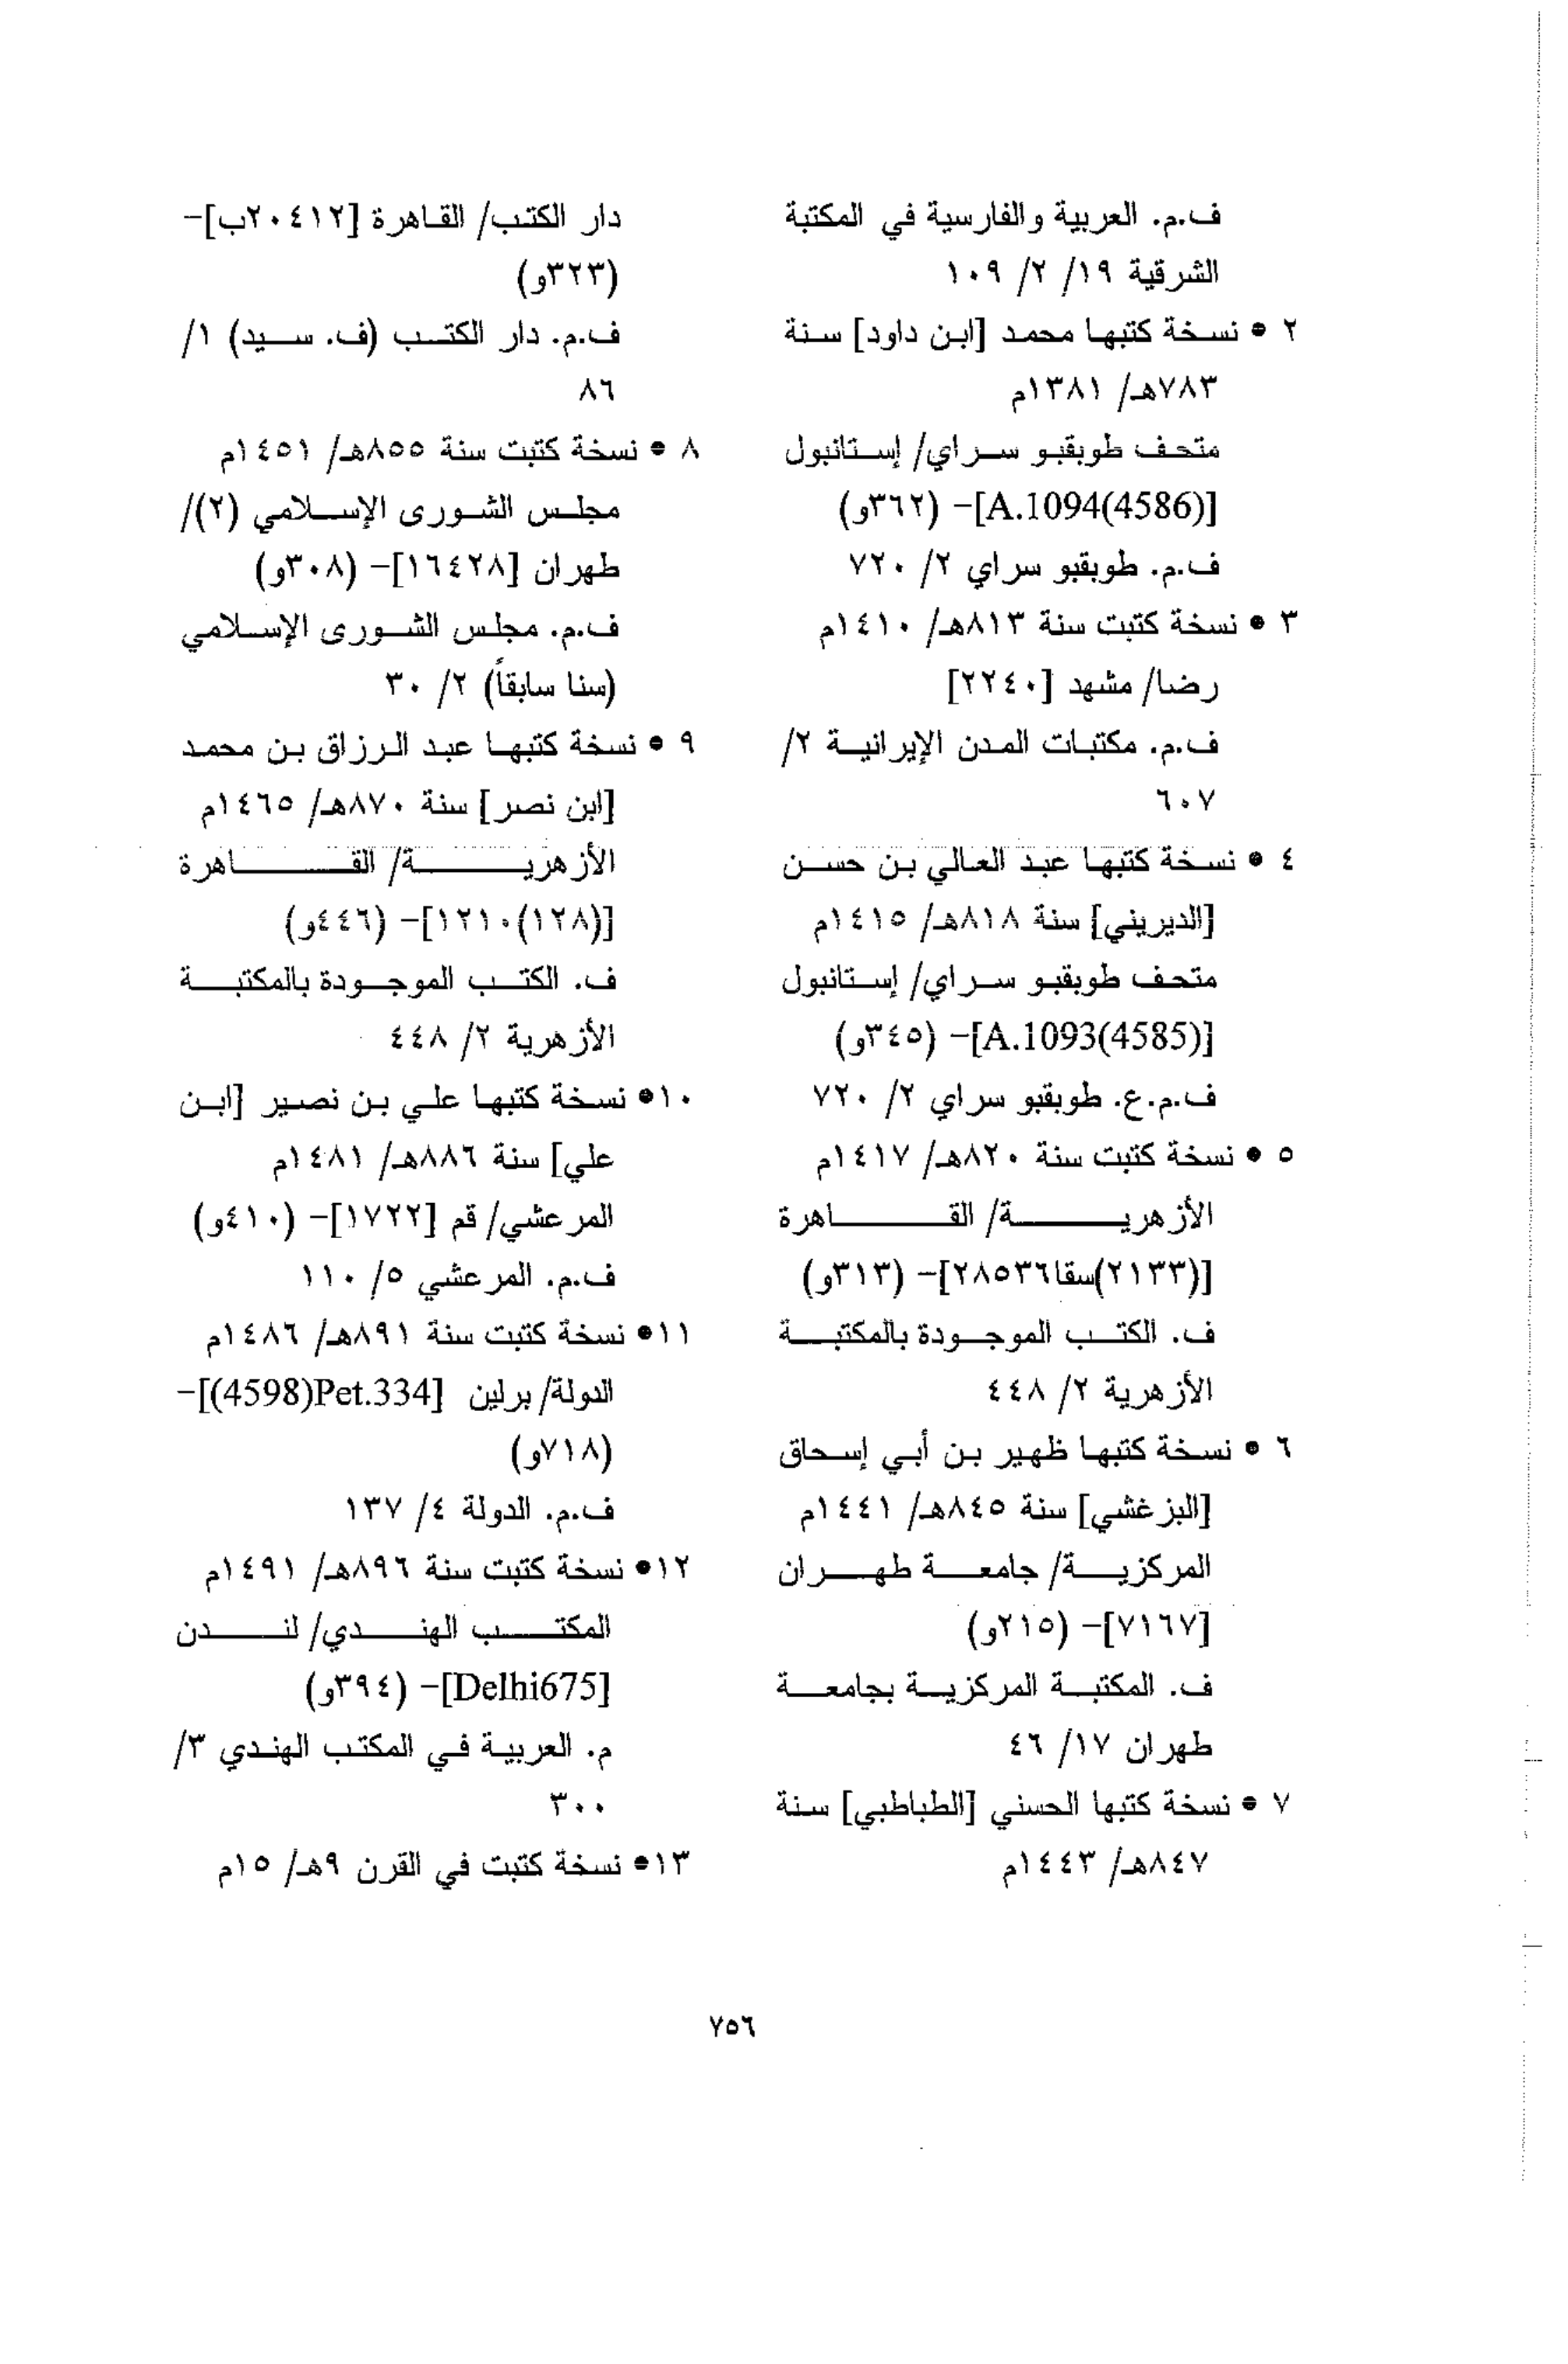 ف.م. العربية والفارسية في المكتبة
الشرقية ١٩/ ٢/ ١٠٩
٢ • نسخة كتبها محمد [ابن داود] سنة
٧٨٣هـ/ ١٣٨١م
متحف طوبقبو سراي/ إستانبول
[A.1094(4586)]– (٣٦٢و)
ف.م. طوبقبو سراي ٢/ ٧٢٠
٣ • نسخة كتبت سنة ٨١٣هـ/ ١٤١٠م
رضا/ مشهد [٢٢٤٠]
ف.م. مكتبات المدن الإيرانية ٢/
٦٠٧
٤ • نسخة كتبها عبد العالي بن حسن
[الديريني] سنة ٨١٨هـ/ ١٤١٥م
متحف طوبقبو سراي/ إستانبول
[A.1093(4585)]– (٣٤٥و)
ف.م.ع. طوبقبو سراي ٢/ ٧٢٠
٥ • نسخة كتبت سنة ٨٢٠هـ/ ١٤١٧م
الأزهرية/ القاهرة
[(٢١٣٣)سقا٢٨٥٣٦]– (٣١٣و)
ف. الكتب الموجودة بالمكتبة
الأزهرية ٢/ ٤٤٨
٦ • نسخة كتبها ظهير بن أبي إسحاق
[البزغشي] سنة ٨٤٥هـ/ ١٤٤١م
المركزية/ جامعة طهران
[٧١٦٧]– (٢١٥و)
ف. المكتبة المركزية بجامعة
طهران ١٧/ ٤٦
٧ • نسخة كتبها الحسني [الطباطبي] سنة
٨٤٧هـ/ ١٤٤٣م
دار الكتب/ القاهرة [٢٠٤١٢ب]–
(٣٢٣و)
ف.م. دار الكتب (ف. سيد) ١/
٨٦
٨ • نسخة كتبت سنة ٨٥٥هـ/ ١٤٥١م
مجلس الشورى الإسلامي (٢)/
طهران [١٦٤٢٨]– (٣٠٨و)
ف.م. مجلس الشورى الإسلامي
(سنا سابقاً) ٢/ ٣٠
٩ • نسخة كتبها عبد الرزاق بن محمد
[ابن نصر] سنة ٨٧٠هـ/ ١٤٦٥م
الأزهرية/ القاهرة
[(١٢٨)١٢١٠]– (٤٤٦و)
ف. الكتب الموجودة بالمكتبة
الأزهرية ٢/ ٤٤٨
١٠• نسخة كتبها علي بن نصير [ابن
علي] سنة ٨٨٦هـ/ ١٤٨١م
المرعشي/ قم [١٧٢٢]– (٤١٠و)
ف.م. المرعشي ٥/ ١١٠
١١• نسخة كتبت سنة ٨٩١هـ/ ١٤٨٦م
الدولة/ برلين [(4598)Pet.334]–
(٧١٨و)
ف.م. الدولة ٤/ ١٣٧
١٢• نسخة كتبت سنة ٨٩٦هـ/ ١٤٩١م
المكتب الهندي/ لندن
[Delhi675]– (٣٩٤و)
م. العربية في المكتب الهندي ٣/
٣٠٠
١٣• نسخة كتبت في القرن ٩هـ/ ١٥م
٧٥٦